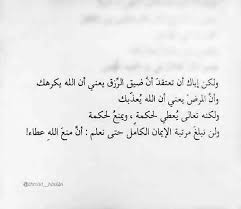 ولكن إياك أن تعتقد أنَّ ضيق الرِّزق يعني أن الله يكرهك
وأن المرضَ يعني أن الله يُعذّبك
ولكنه تعالى يُعطي لحكمةٍ ، ويمنعُ لحكمة
ولن نبلغَ مرتبة الإيمان الكامل حتى نعلم : أنَّ منعَ الله عطاء!